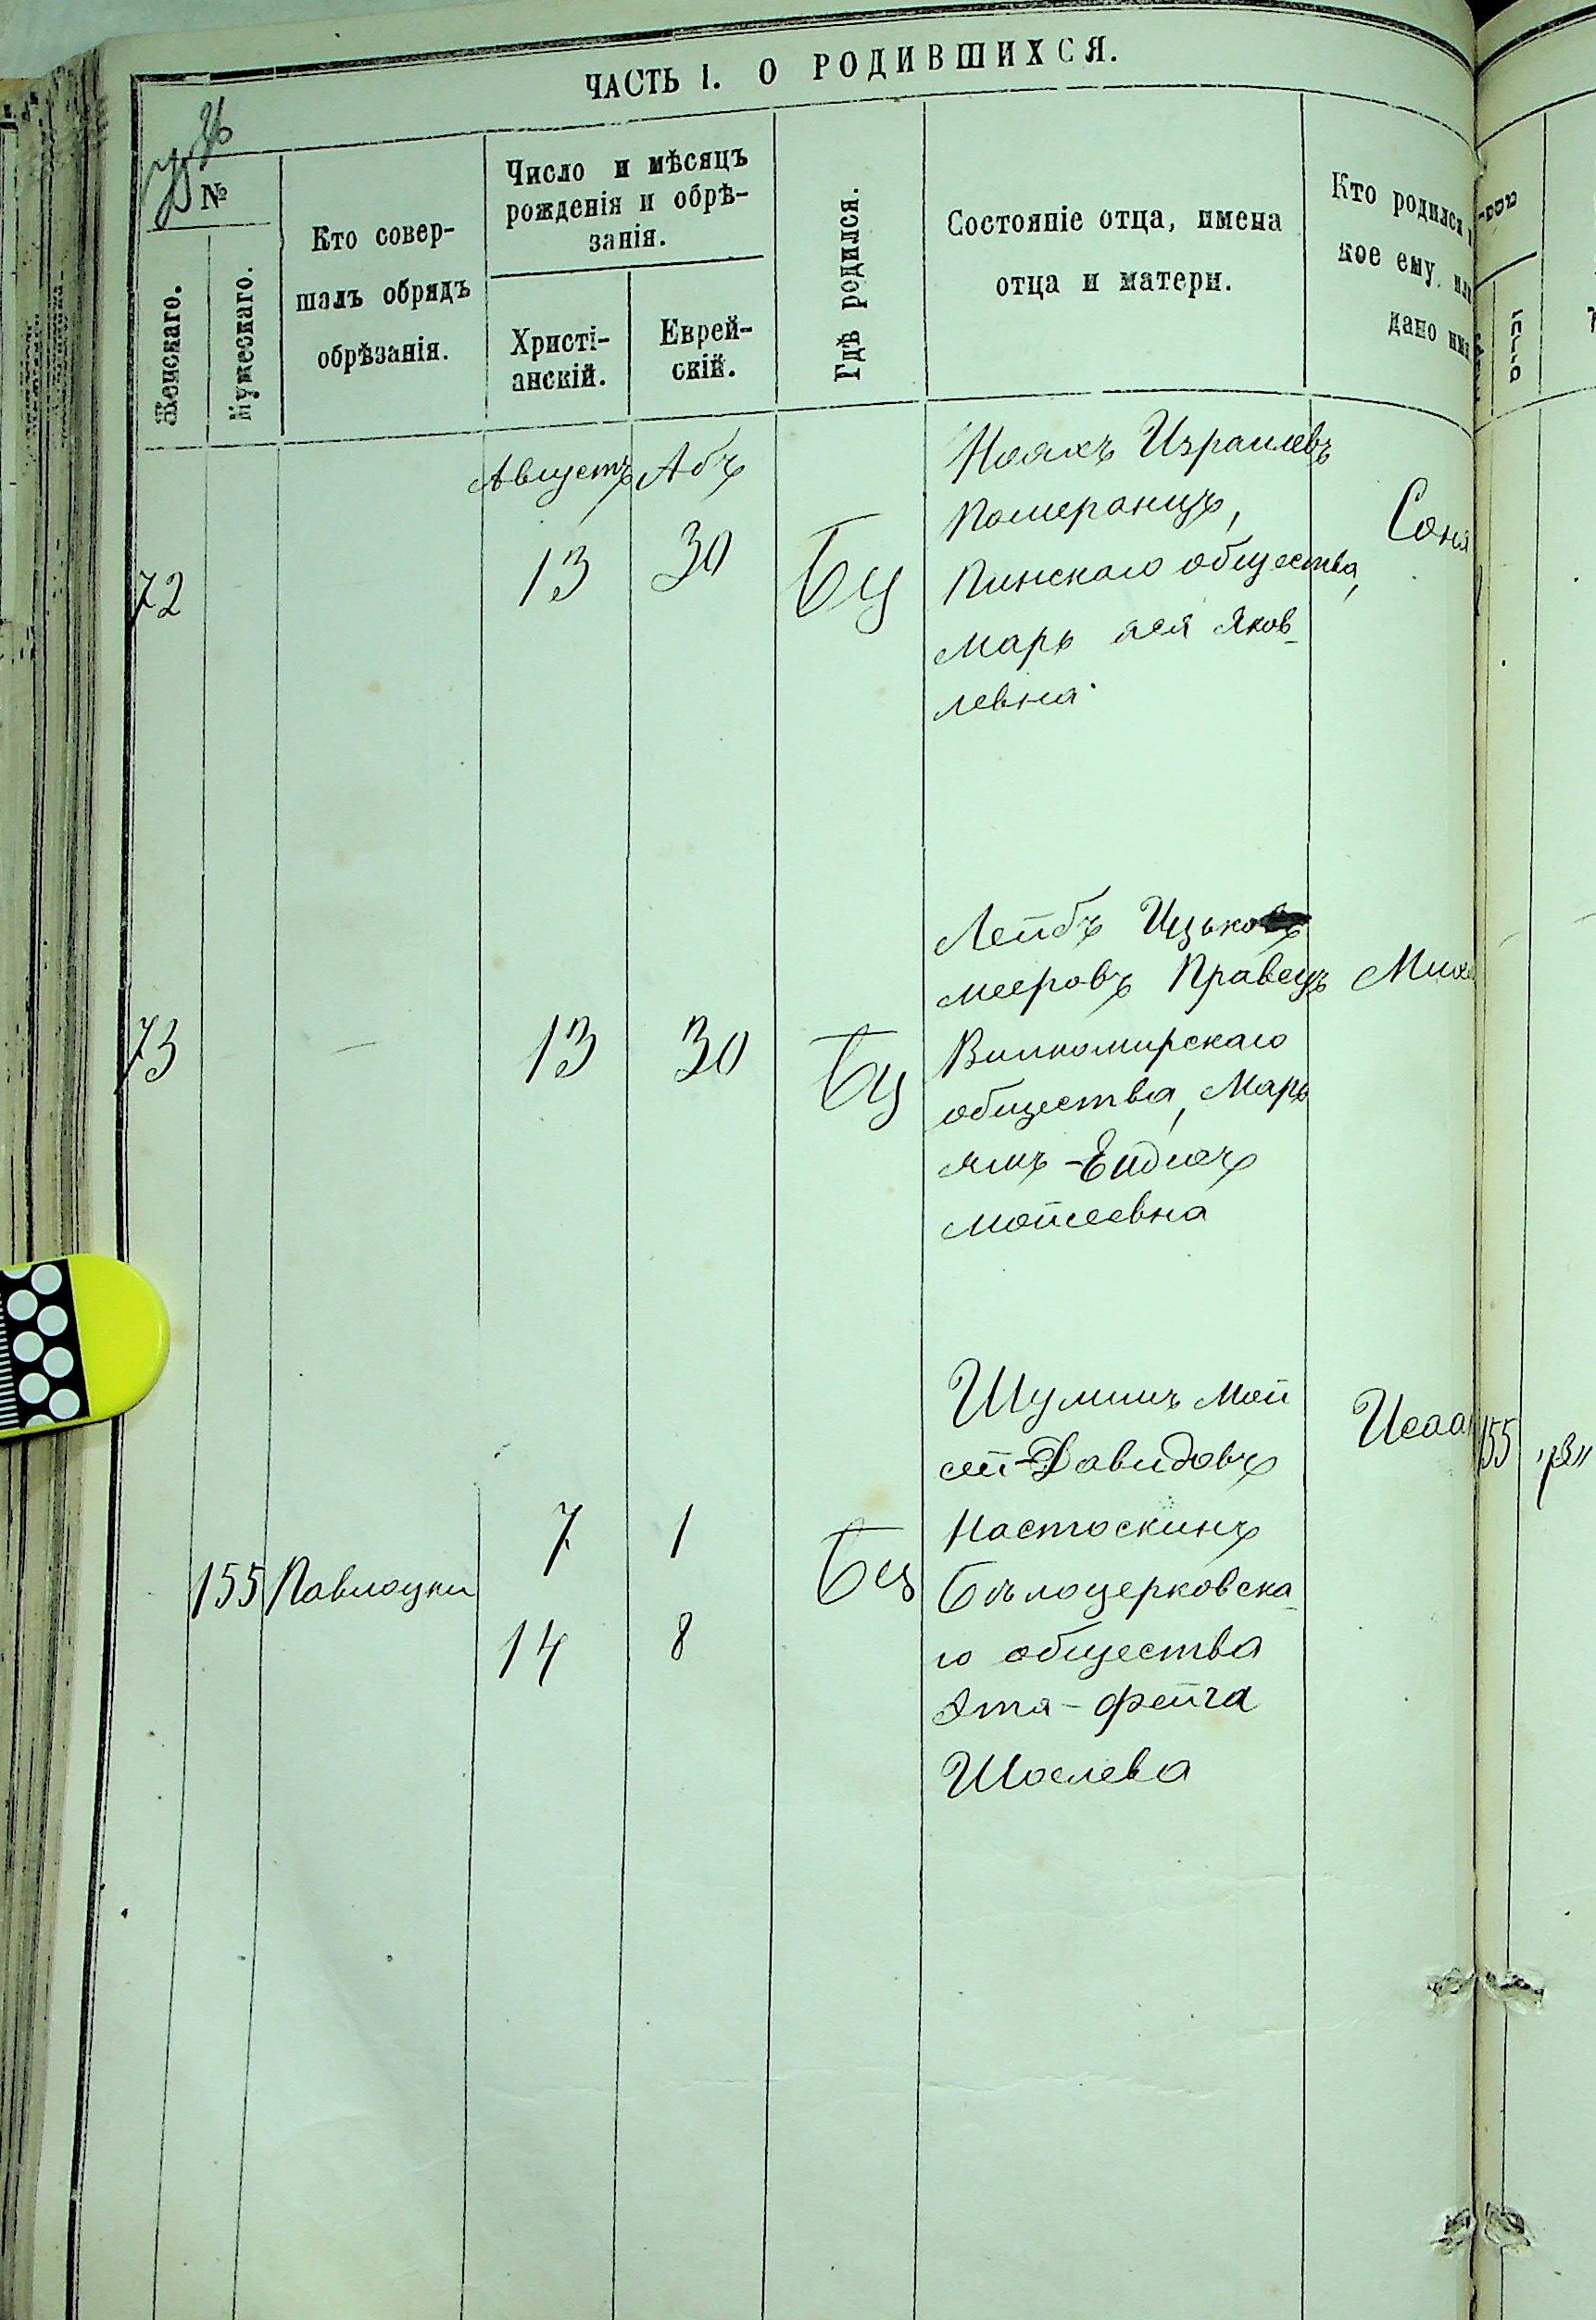 ЧАСТЬ I. О РОДИВШИХСЯ.
№
Женскаго.
Мужескаго.
Кто совер-
шалъ обрядъ
обрѣзанія.
Число и мѣсяцъ
рожденія и обрѣ-
занія.
Христі-
анскій.
Еврей-
скій.
Гдѣ родился.
Состояніе отца, имена
отца и матери.
Кто родился
кое ему, или
дано имя
Августъ
Абъ
72
13
30
БЦ
Ноахъ Израилевъ
Померанцъ,
Пинскаго общества,
Марь яся Яков-
левна
Соня
73
—
13
30
БЦ
Лейбъ Ицьковъ
Мееровъ Правецъ
Вилкомирскаго
общества, Марь
ямъ-
Мошеевна
155
Павлоцки
7
1
14
8
БЦ
Шулимъ Мой
сей-Давидовъ
Настоскинъ
Бѣлоцерковска-
го общества
Эта-Фейга
Шоелева
Исаа
155